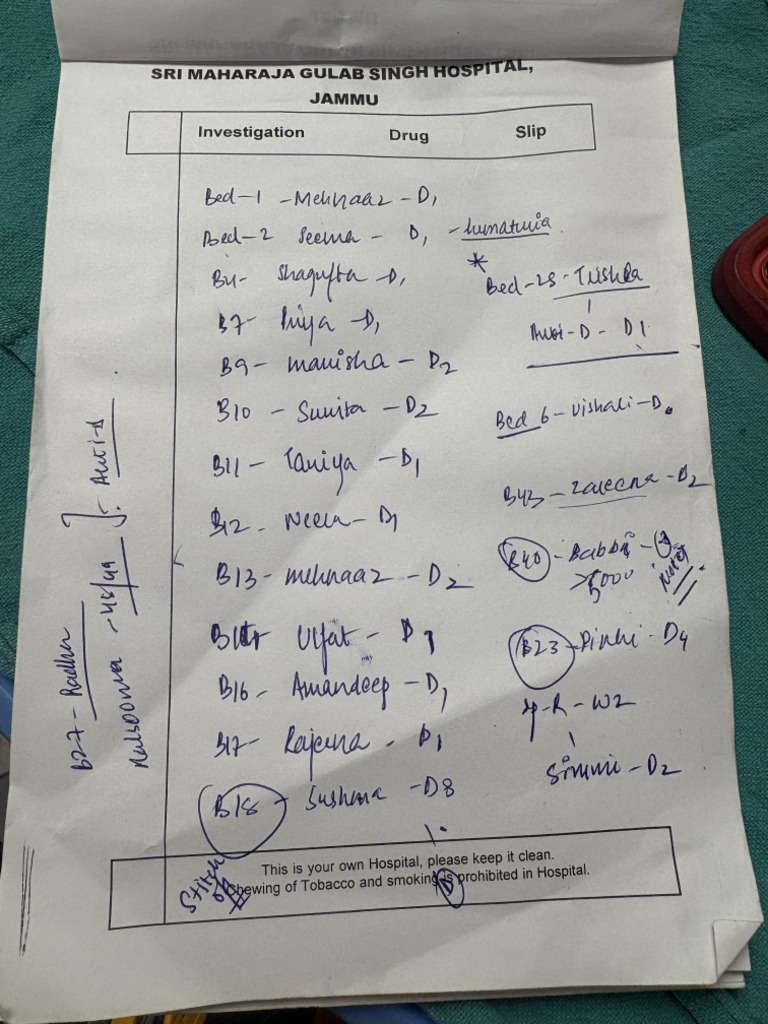 SRI MAHARAJA GULAB SINGH HOSPITAL,
JAMMU
Investigation Drug Slip
Bed-1 - Mehnaaz - D1
Bed-2 Seema - D1 - hematuria
B4- Shagufta - D1
B7- Priya - D1
B9- Manisha - D2
B10 - Sunita - D2
B11 - Taniya - D1
B12 - Neelu - D1
B13 - Mehnaaz - D2
Ulfat - D1
B16 - Amandeep - D1
B17- Rajeena - D1
B18 - Sushma - D8
Stitch off
* Bed-28 - Trishla
Anti-D - D1
Bed 6 - Vishali - D0
B43 - Zaleena - D2
B40 - Babbi
5000
B23 - Pinki - D4
W2
Simmi - D2
B27 - Radha
Kulsooma - 48/49 } : Anti-D
This is your own Hospital, please keep it clean.
Chewing of Tobacco and smoking is prohibited in Hospital.